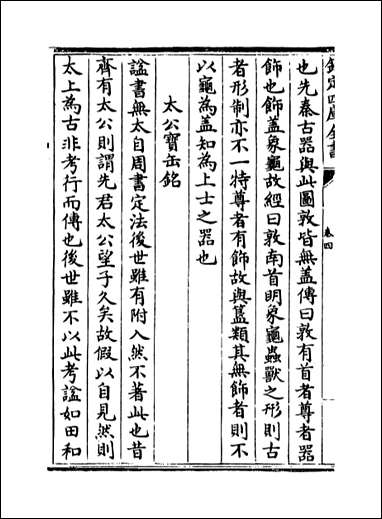 欽定四庫全書
卷四
也先秦古器與此圖敦皆無盖傳曰敦有首者尊者器
飾也飾盖象龜故經曰敦南首明象龜蟲獸之形則古
者形制亦不一特尊者有飾故與簋類其無飾者則不
以龜為盖知為上士之器也
太公寶缶銘
諡書無太自周書定法後世雖有附入然不著此也昔
齊有太公則謂先君太公望子久矣故假以自見然則
太上為古非考行而傳也後世雖不以此考諡如田和